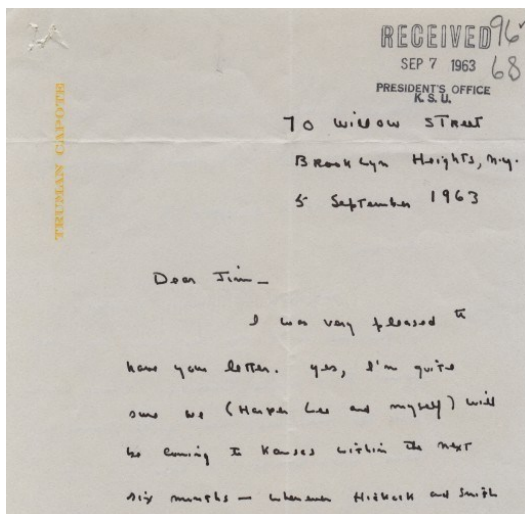 RECEIVED 96
SEP 7 1963 68
PRESIDENT'S OFFICE
K.S.U.
TRUMAN CAPOTE
70 Willow Street
Brooklyn Heights, N.Y.
5 September 1963
Dear Jim—
I was very pleased to
have your letter. Yes, I'm quite
sure we (Harper Lee and myself) will
be coming to Kansas within the next
six months — whenever Hickock and Smith